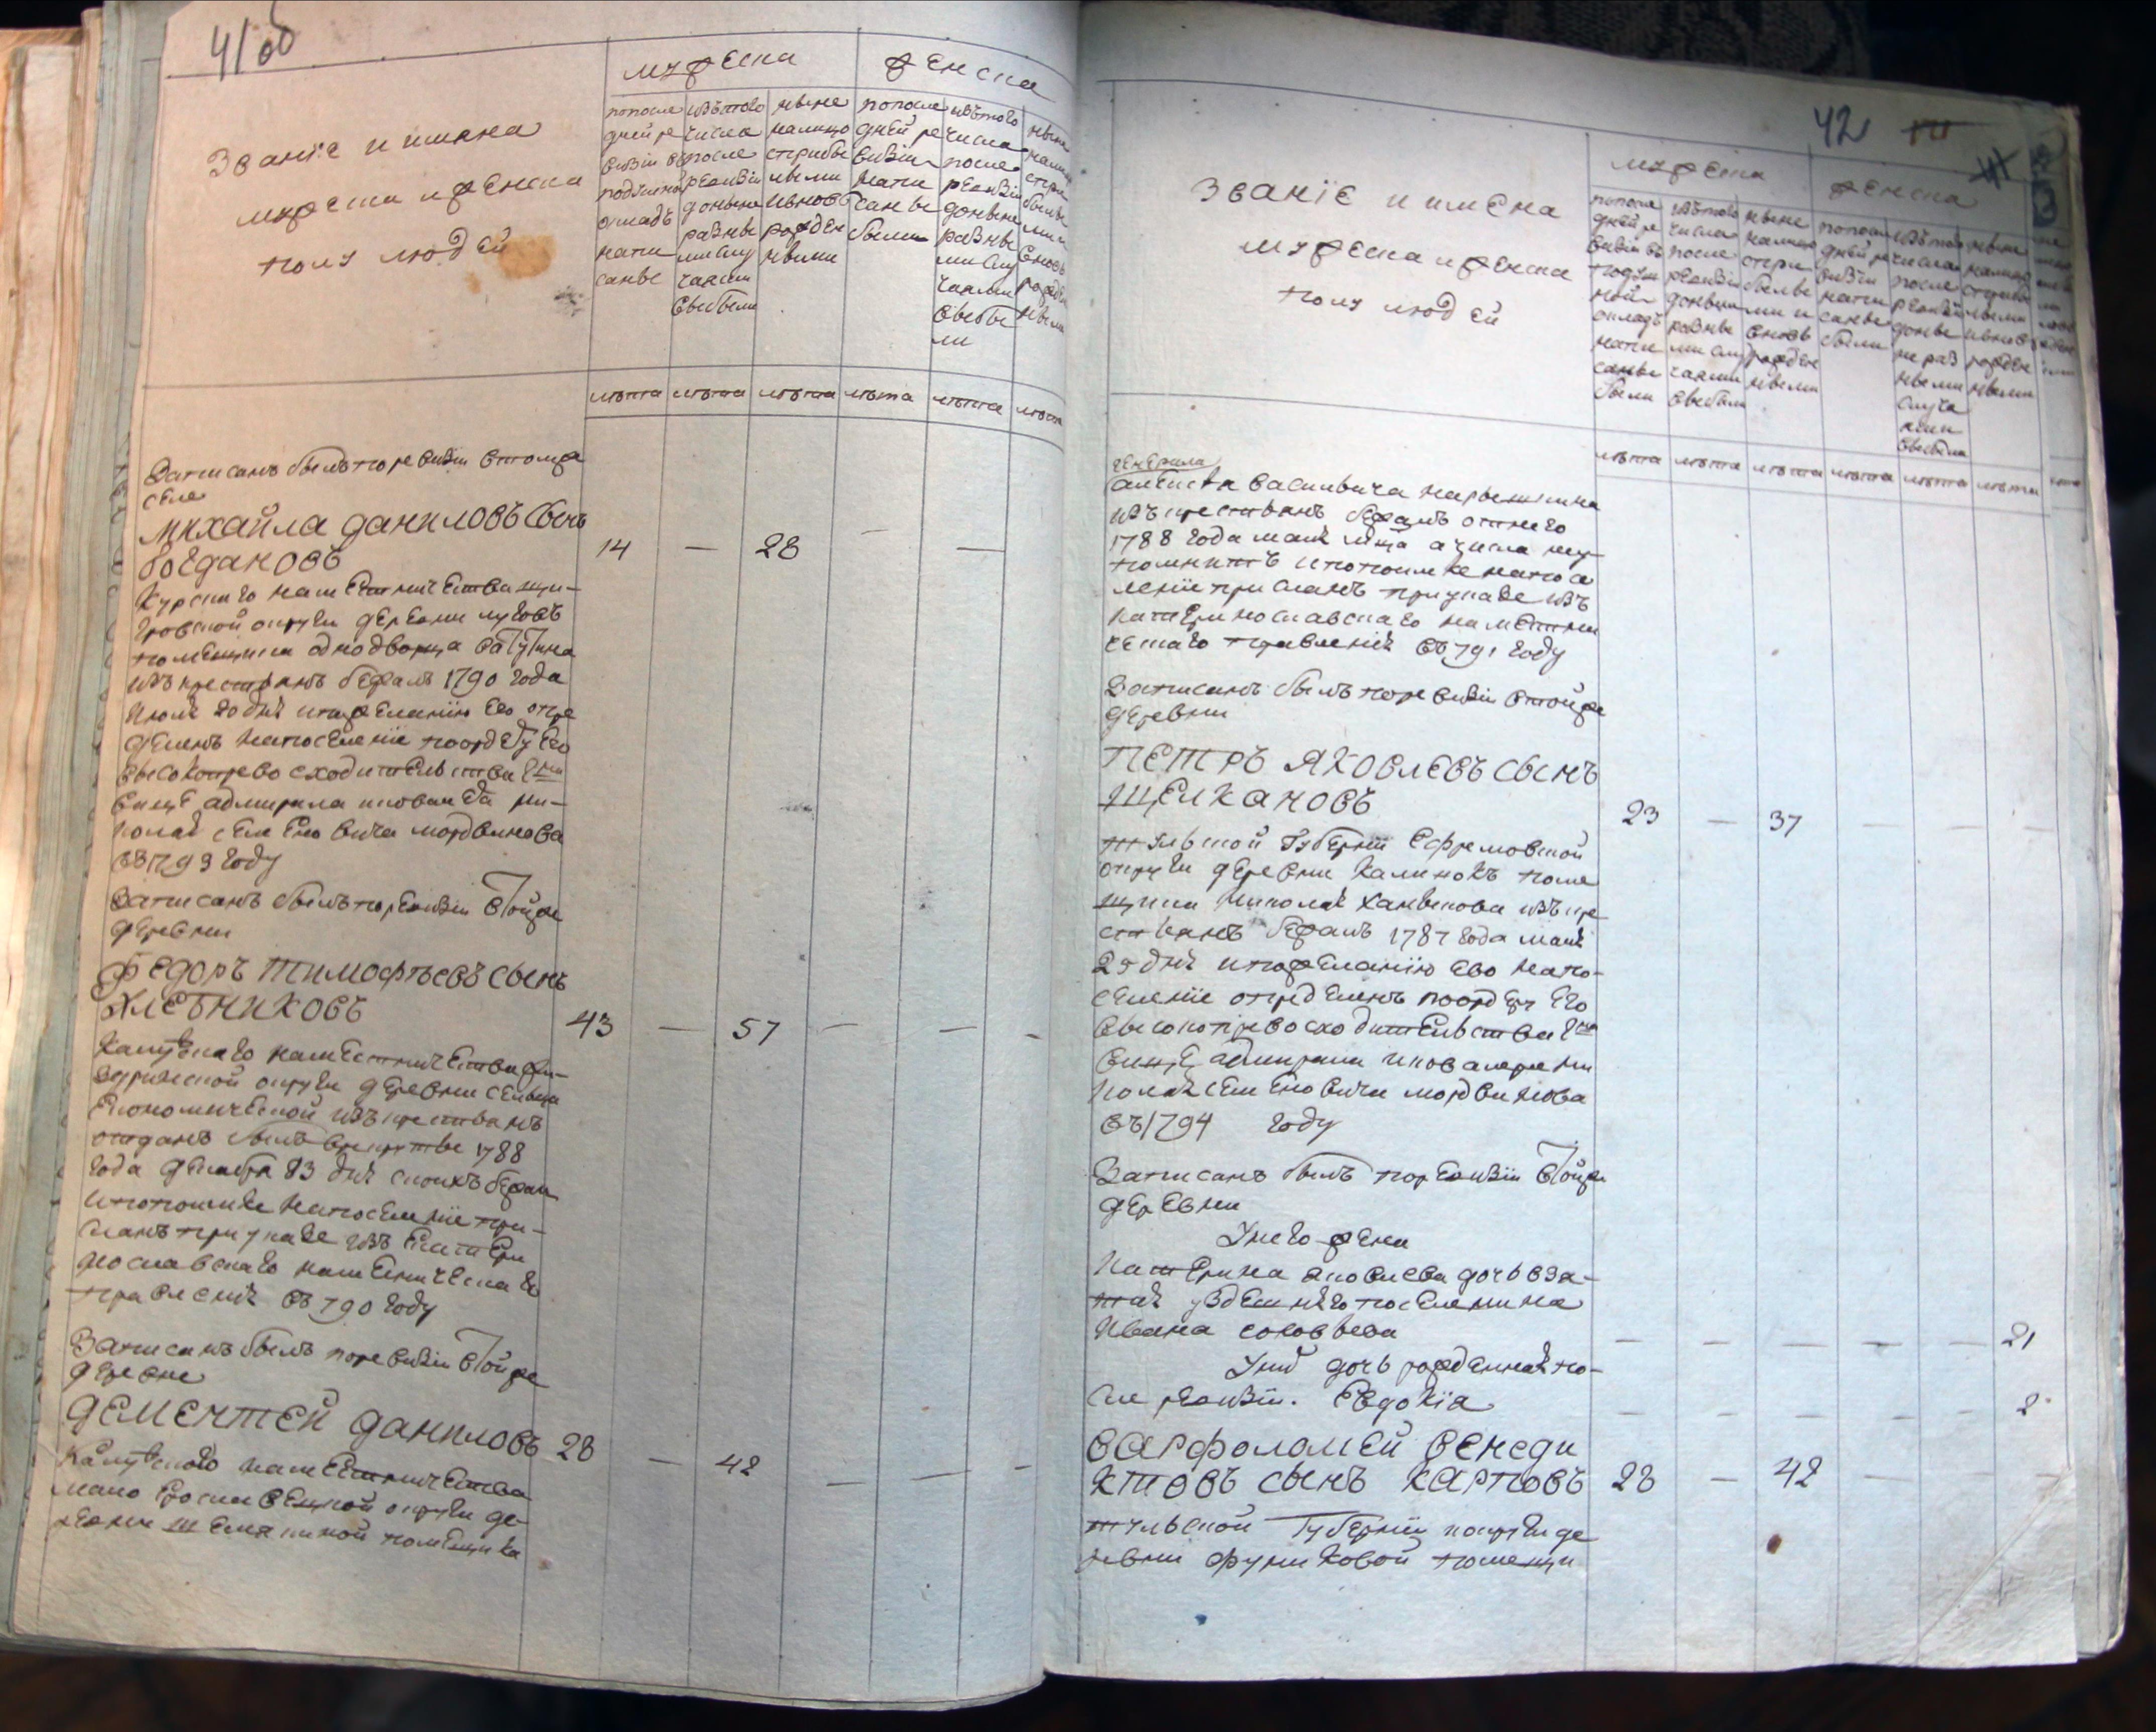 41об
мужеска
женска
Званїе и имяна
мужеска и женска
полу людей
попосле
дней ре
визїи въ
подушной
окладъ
напи
саны
изътого
числа
после
ревизїи
доныне
разны
ми слу
чаями
выбыли
ныне
налицо
сприбы
лыми
ивновь
рожден
ными
попосле
дней ре
визїи
напи
саны
были
изътого
числа
после
ревизїи
доныне
разны
ми слу
чаями
выбы
ли
ныне
лѣта лѣта лѣта лѣта лѣта лѣта
Записанъ былъ поревизїи втомже
селе
михайла даниловъ сынъ
богдановъ 14 — 28 — —
Курскаго наместничества щи-
гровской округи деревни луговъ
помещика однодворца
изъ крестьянъ бежалъ 1790 года
июля 20 дня ипожеланїю ево опре
деленъ напоселенїе поордеру его
высокопревосходительства гна
вице адмирала икавалера ни-
колая семеновича мордвинова
въ1793 году
Записанъ былъ поревизїи втойже
деревни
федоръ тимофѣевъ сынъ
хлебниковъ 43 — 57 — — —
Калужскаго наместничества жи-
здринской округи деревни
Економической изъ крестьянъ
отданъ былъ врекруты 1788
года декабря 13 дня слошкъ бежал
ипопоимке напоселенїе при-
сланъ приуказе изъ Екатери
нославскаго наместническаго
правленїя въ790 году
Записанъ былъ поревизїи втойже
деревне
дементей даниловъ 28 — 42 — — —
Калужского наместничества
мало ярославецкой округи де-
ревни помещика
42
Званїе и имена
мужеска и женска
полу людей
мужеска
женска
попосле
дней ре
визїи въ
подуш
ной
окладъ
напи
саны
были
изътого
числа
после
ревизїи
доныне
разны
ми слу
чаями
выбыли
ныне
налицо
спри
былы
ми и
вновь
рожден
ными
попосле
дней ре
визїи
напи
саны
были
изътого
числа
после
ревизїи
доны
не раз
ными
случа
ями
выбыли
ныне
налицо
сприбы
лыми
ивновь
рожден
ными
лѣта лѣта лѣта лѣта лѣта лѣта
генерала
алексея васильвича нарышкина
изъ крестьянъ бежалъ отнего
1788 года мая мца а числа неу-
помнитъ ипопоимке напосе
ленїе присланъ приуказе изъ
катеринославскаго наместни
ческаго правленїя въ791 году
Записанъ былъ поревизїи втойже
деревни
петръ яковлевъ сынъ
щелкановъ 23 — 37 — — —
тульской губернїи Ефремовской
округи деревни калинокъ поме
щика николая ханыкова изъ кре
стьянъ бежалъ 1787 года мая
25 дня ипожеланїю ево напо-
селенїе определенъ поордеру его
высокопревосходительства гна
вице адмирала икавалера ни
колая семеновича мордвинова
въ1794 году
Записанъ былъ поревизїи втойже
деревни
Унего жена
катерина яковлева дочь взя-
тая уздешняго поселенина
Ивана соловьева — — — — — 21
Уних дочь рожденная по-
сле ревизїи. Евдокїа — — — — — 2
варфоломей бенеди
ктовъ сынъ карповъ 28 — 42 — — —
тульской губернїи иокруги де
ревни фуниковой помещи